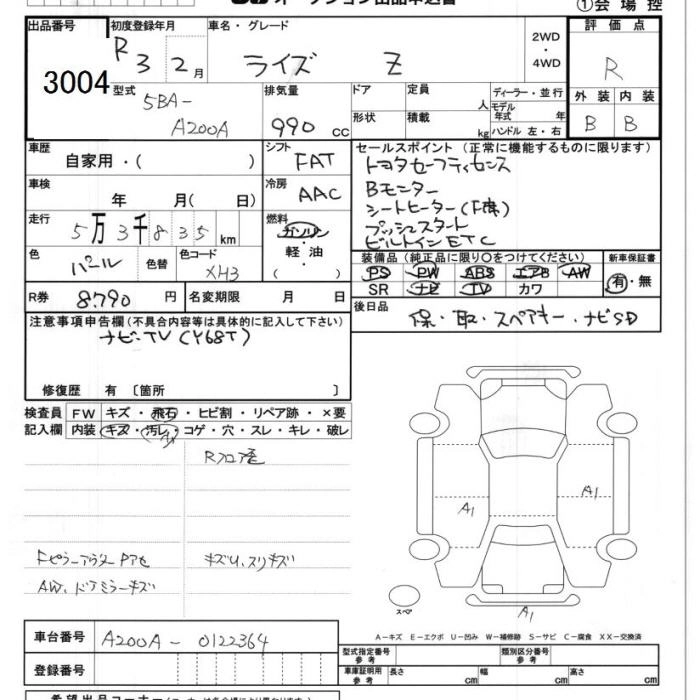 ①会 場 控
出品番号
初度登録年月
車名・グレード
評 価 点
R 3 2月
ライズ Z
2WD
・
4WD
R
3004
型式
5BA-
A200A
排気量
990 cc
ドア
定員 人
ディーラー・並行
外 装 内 装
形状
積載 kg
モデル年式 年
ハンドル 左・右
B B
車歴
自家用・( )
シフト
FAT
セールスポイント (正常に機能するものに限ります)
トヨタセーフティセンス
Bモニター
シートヒーター(F席)
プッシュスタート
ビルトインETC
車検
年 月( 日)
冷房
AAC
走行
5万3千835km
燃料
ガソリン
・
軽 油
( )
色
パール
色替
色コード
XH3
装備品 (純正品に限り〇をつけてください)
新車保証書
PS PW ABS エアB AW
SR ナビ TV カワ
有・無
R券
8790 円
名変期限 月 日
後日品
保・取・スペアキー・ナビSD
注意事項申告欄(不具合内容等は具体的に記入して下さい)
ナビ-TV(Y68T)
修復歴 有 〔箇所 〕
検査員 FW キズ・飛石・ヒビ割・リペア跡・×要
記入欄 内装 キズ・汚レ・コゲ・穴・スレ・キレ・破レ
A1
A1
キズU、スリキズ
AW、ドアミラーキズ
スペア
A1
A-キズ E-エクボ U-凹み W-補修跡 S-サビ C-腐食 XX-交換済
車台番号
A200A-0122364
型式指定番号
参 考
類別区分番号
参 考
登録番号
車庫証明用
参 考
長さ cm
幅 cm
高さ cm